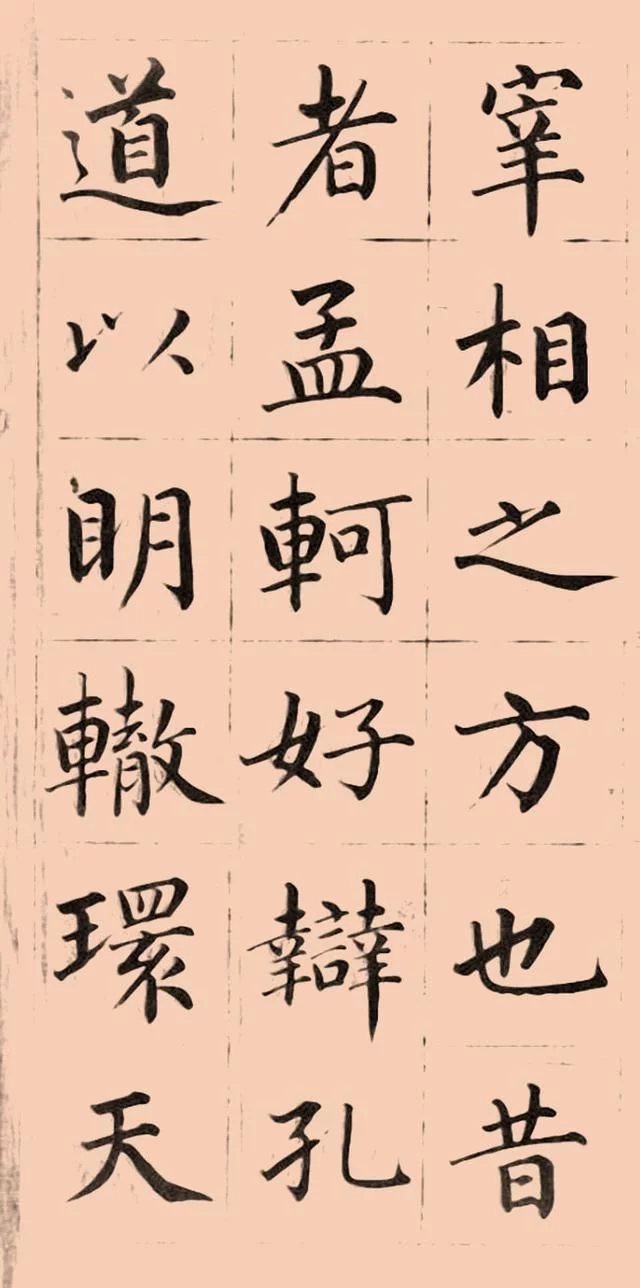 宰相之方也昔
者孟軻好辯孔
道以明轍環天